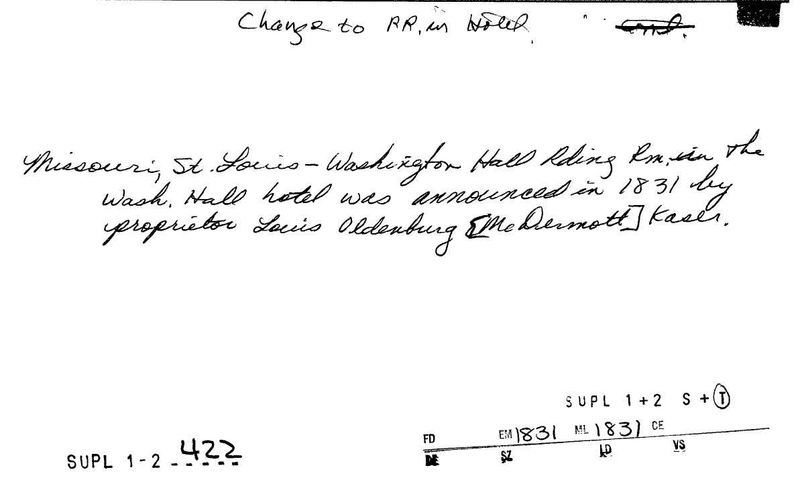 Change to RR, in Hotel.
Missouri, St. Louis - Washington Hall Rding Rm. in the
Wash. Hall hotel was announced in 1831 by
proprietor Louis Oldenburg [McDermott] Kaser.
SUPL 1+2 S+T
FD EM 1831 ML 1831 CE
DE SZ LD VS
SUPL 1-2 422